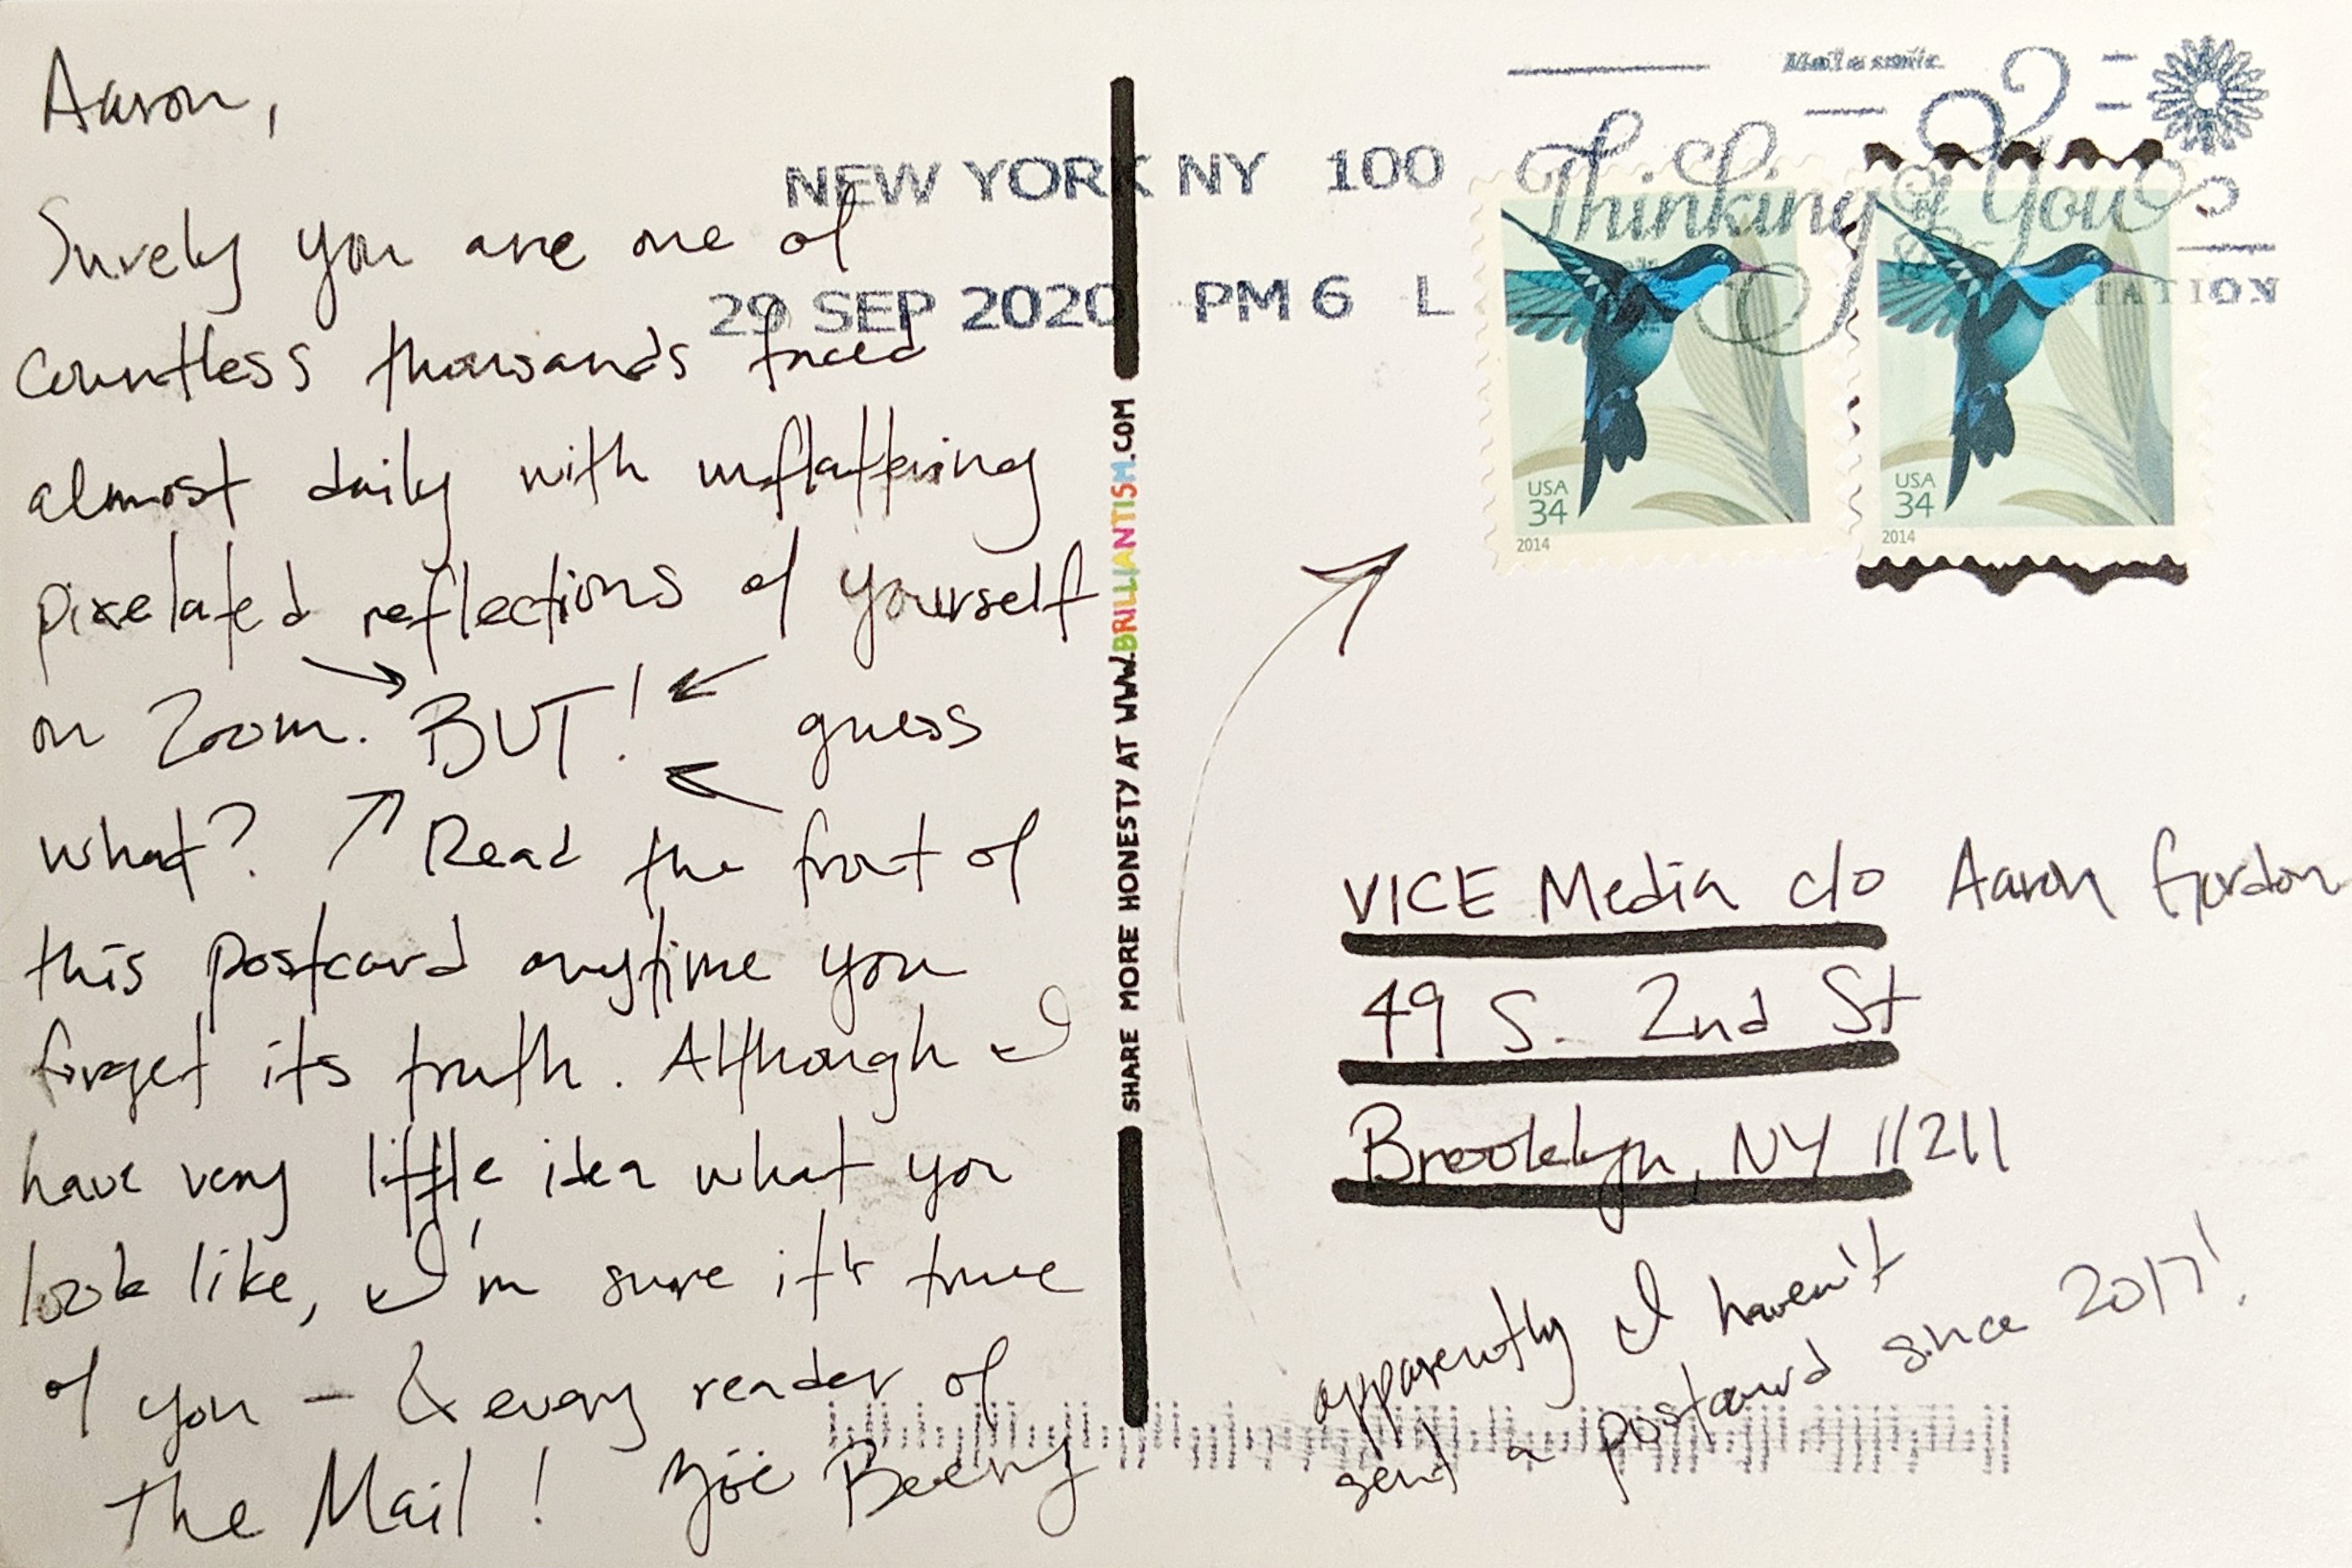 Aaron,
Surely you are one of
countless thousands faced
almost daily with unflattering
pixelated reflections of yourself
on Zoom. BUT! guess
what? Read the front of
this postcard anytime you
forget its truth. Although I
have very little idea what you
look like, I'm sure it's true
of you – & every reader of
The Mail! Zöe Beery
SHARE MORE HONESTY AT WWW.BRILLIANTISM.COM
NEW YORK NY 100
29 SEP 2020 PM 6 L
Thinking of You
USA
34
2014
USA
34
2014
VICE Media c/o Aaron Gordon
49 S. 2nd St
Brooklyn, NY 11211
apparently I haven't
sent a postcard since 2017!